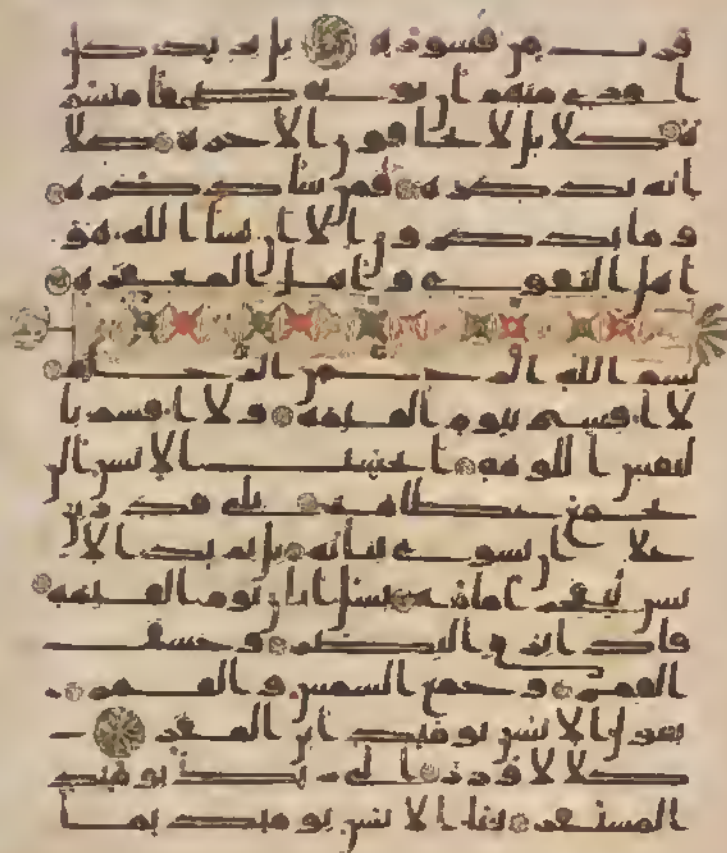 فرت من قسورة بل يريد كل
امرئ منهم ان يؤتى صحفا منشر
ة كلا بل لا يخافون الاخرة كلا
انه تذكرة فمن شا ذكره
وما يذكرون الا ان يشا الله هو
اهل التقوى و اهل المغفرة
بسم الله الرحمن الرحيم
لا اقسم بيوم القيمة و لا اقسم با
لنفس اللومة ايحسب الانسن الن
نجمع عظامه بلى قدرين
على ان نسوي بنانه بل يريد الا
نسن ليفجر امامه يسل ايان يوم القيمة
فاذا برق البصر و خسف
القمر و جمع الشمس و القمر
يقول الانسن يومئذ اين المفر
كلا لا وزر الى ربك يومئذ
المستقر ينبا الانسن يومئذ بما